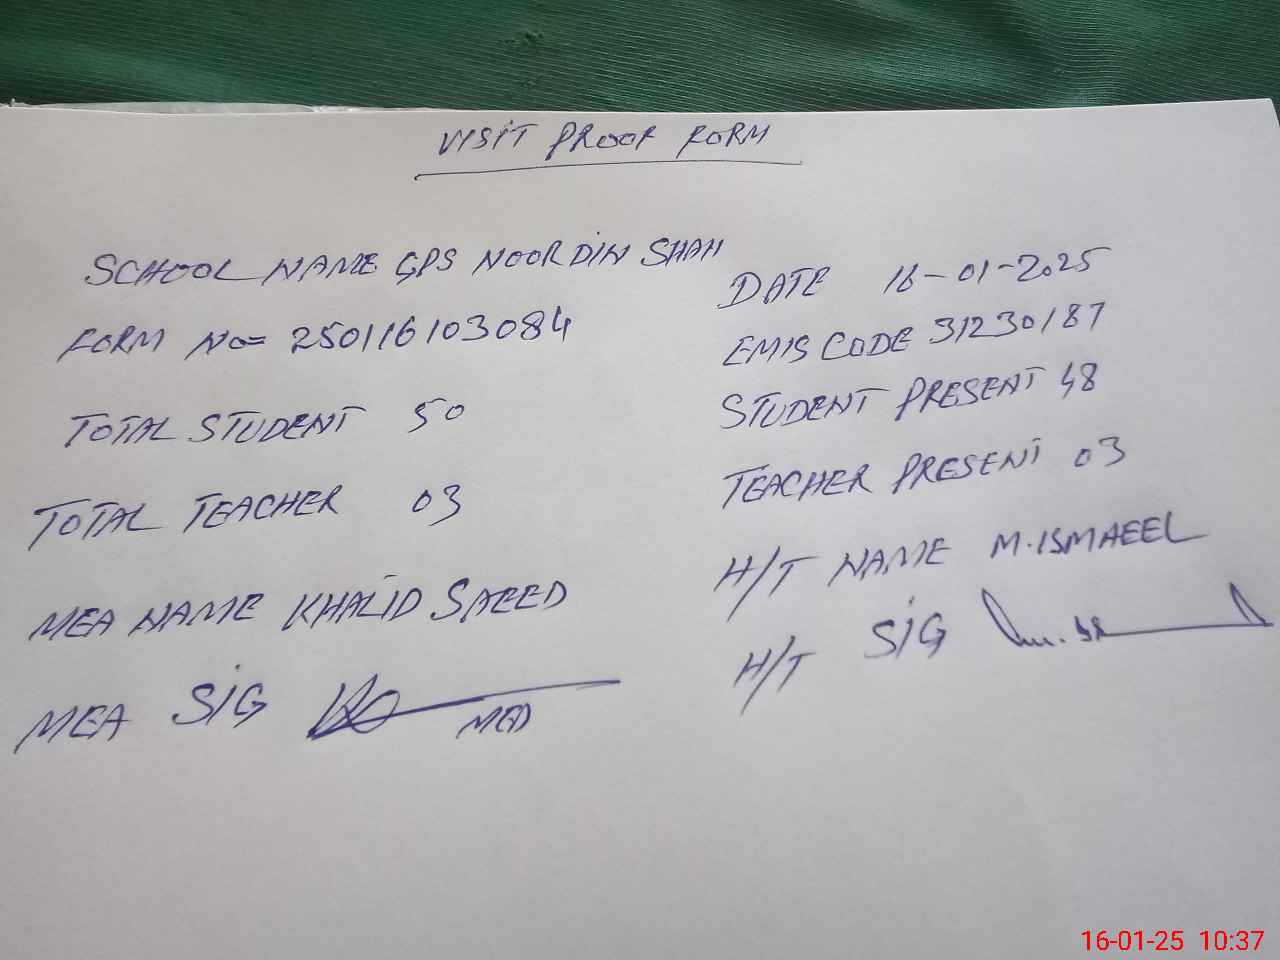 VISIT PROOF FORM
SCHOOL NAME GPS NOORDIN SHAH
DATE 16-01-2025
FORM NO= 250116103084
EMIS CODE 31230187
TOTAL STUDENT 50
STUDENT PRESENT 48
TOTAL TEACHER 03
TEACHER PRESENT 03
MEA NAME KHALID SAEED
H/T NAME M.ISMAEEL
MEA SIG
H/T SIG
16-01-25 10:37